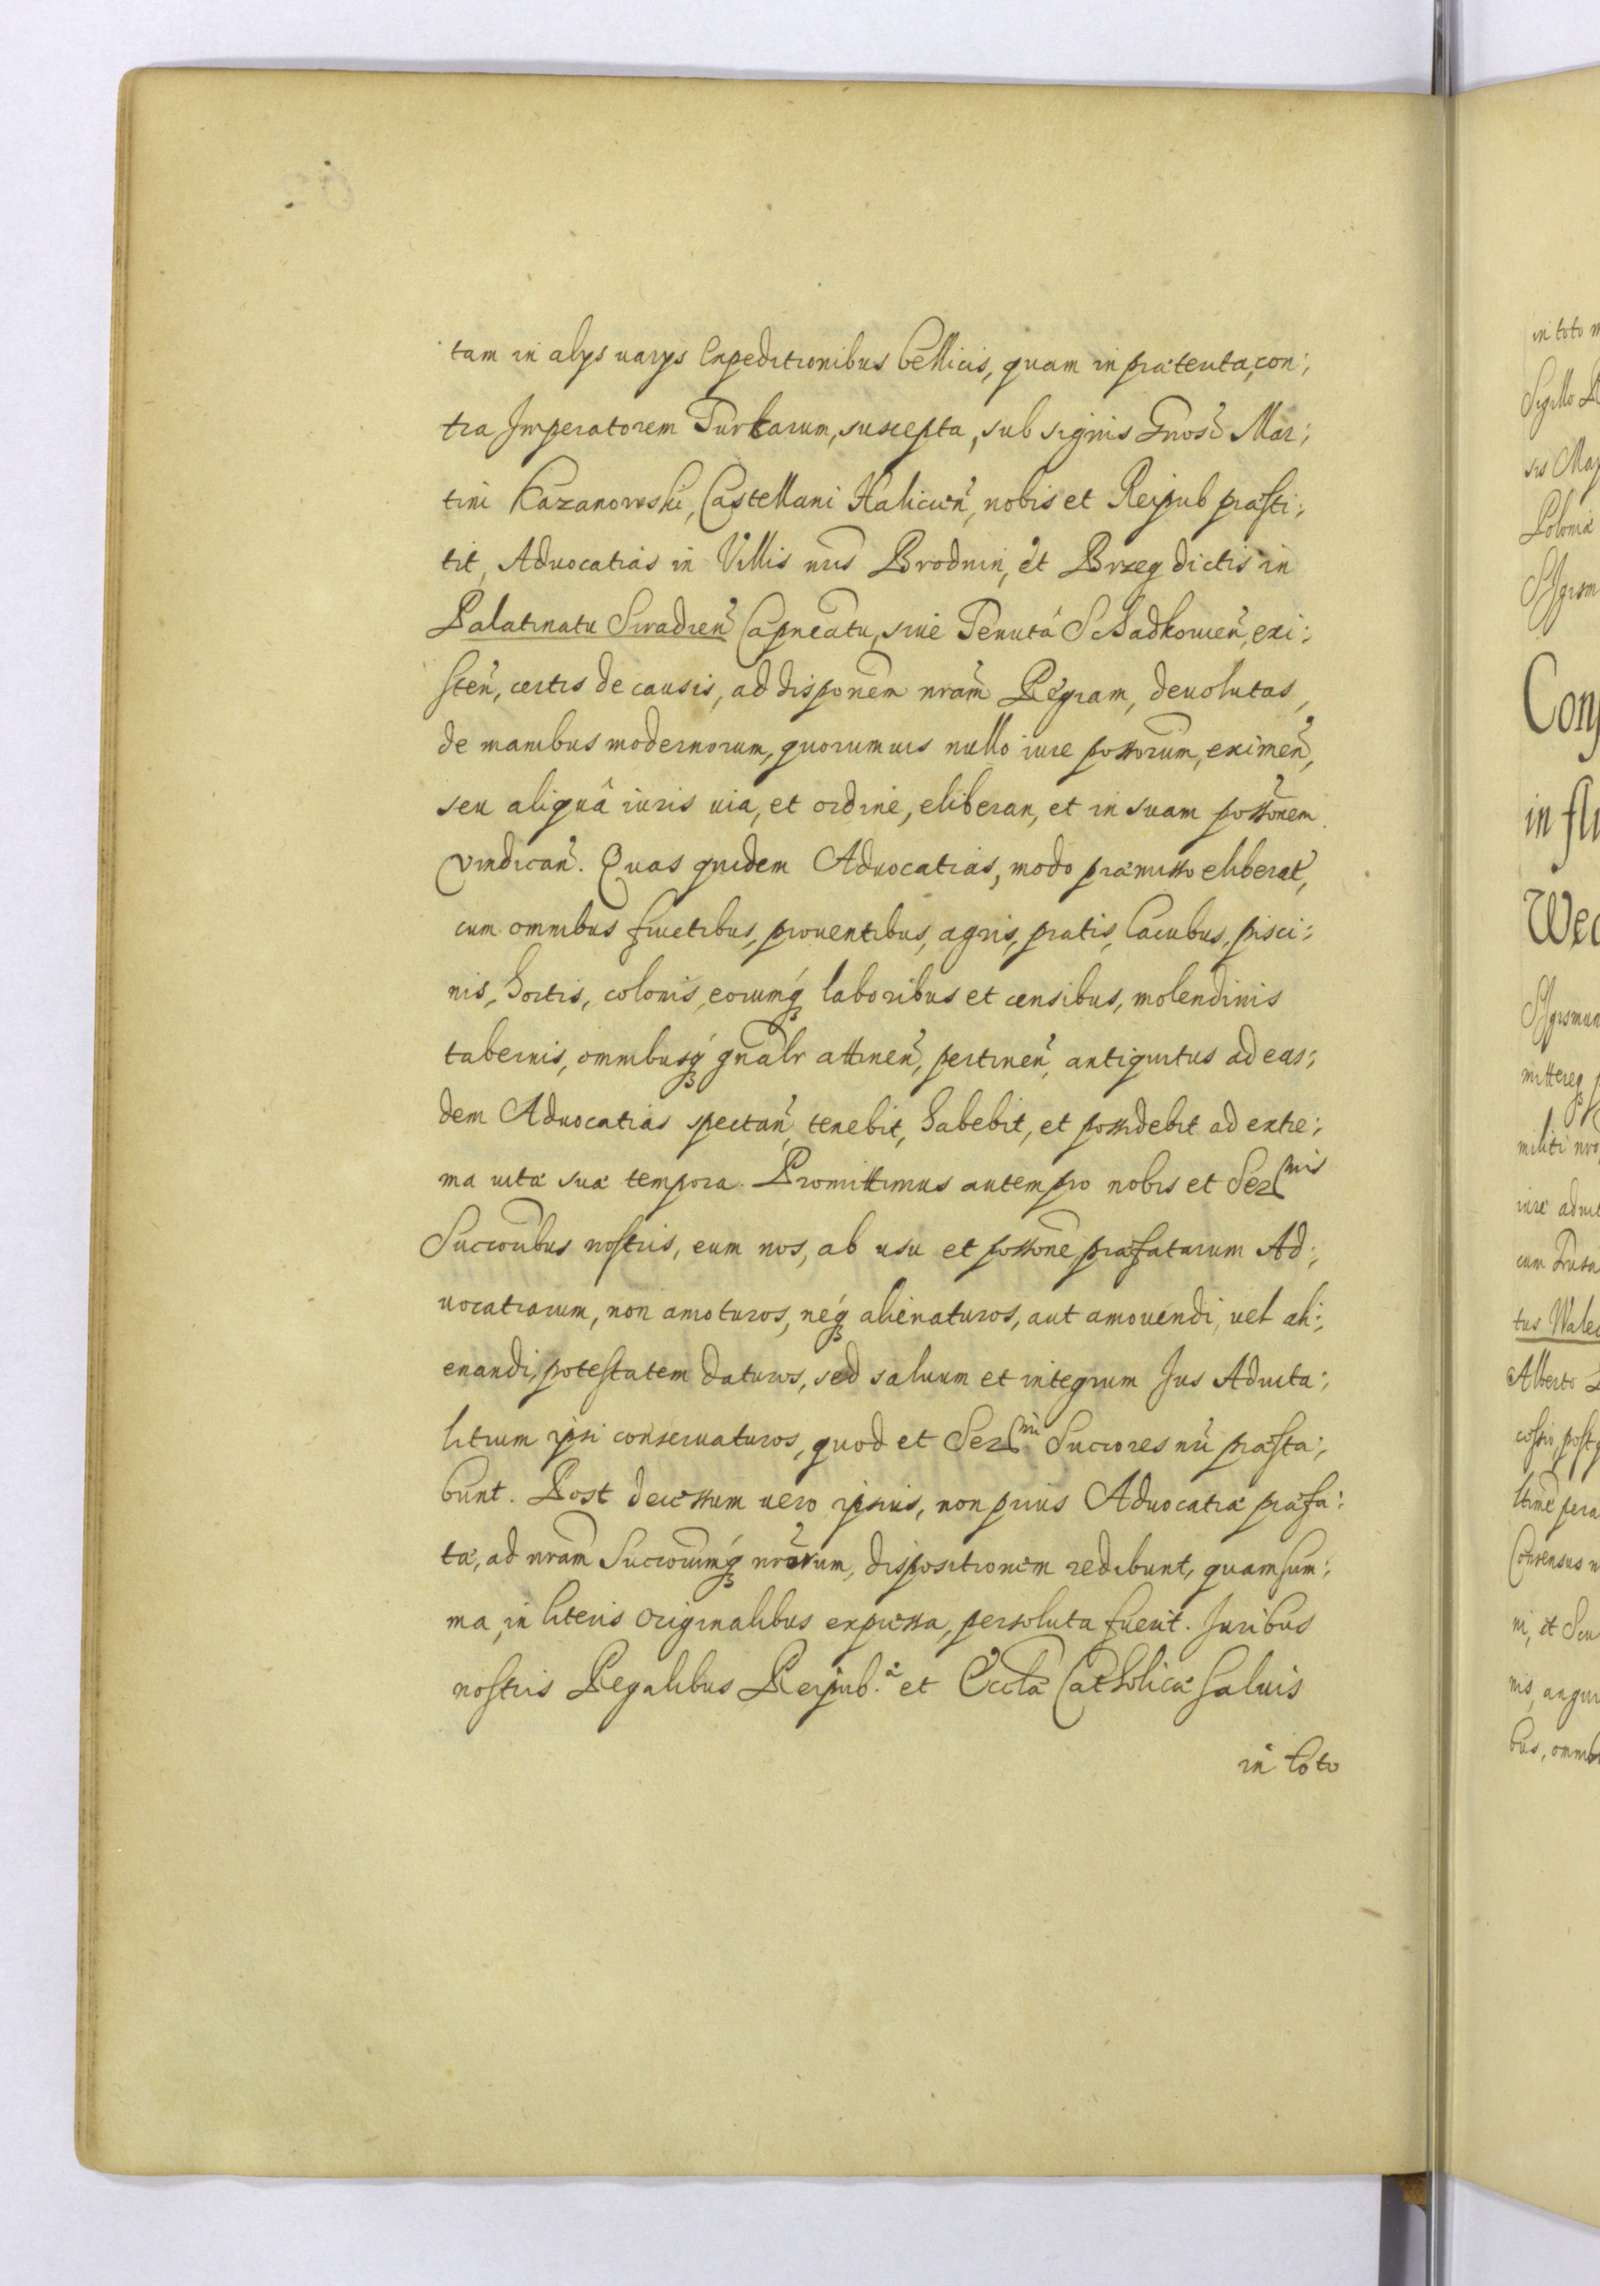 tam in alys varys Expeditionibus bellicis, quam in prætenta, con:,
tra Imperatorem Turkarum, suscepta, sub signis Gnosi Mar:,
tini Kazanowski, Castellani Halicien, nobis et Reipub præsti:,
tit, Advocatias in Villis nris Brodnin, et Brzeg dictis in
Palatinatu Siradien Capneatu, sive Tenuta Schadkowien, exi:,
sten, certis de causis, ad disponem nram Regiam, devolutas,
de manibus modernorum, quorumvis nullo iure possorum, eximen,
seu aliquâ iuris via, et ordine, eliberan, et in suam possonem
vindican. Quas quidem Advocatias, modo præmisso eliberat,
cum omnibus fructibus, proventibus, agris, pratis, lacubus, pisci:,
nis, hortis, colonis, eorumq laboribus et censibus, molendinis
tabernis, omnibusq gnalr attinen, pertinen, antiquitus ad eas:,
dem Advocatias spectan, tenebit, habebit, et possidebit ad extre:,
ma vitæ suæ tempora. Promittimus autem pro nobis et Ser mis
Succoribus nostris, eum nos, ab usu et possone præfatarum Ad:,
vocatiarum, non amoturos, neq alienaturos, aut amovendi, vel ali:,
enandi, potestatem daturos, sed salvum et integrum Jus Advita:,
litium ipsi conservaturos, quod et Ser mi Succores nri præsta:,
bunt. Post decessum vero ipsius, non prius Advocatiæ præfa:,
tæ, ad nram Succorumq nrorum, dispositionem redibunt, quam sum:,
ma, in literis originalibus expressa, persoluta fuerit. Juribus
nostris Regalibus Reipub. æ et Ecclæ Catholicæ salvis
in toto
in toto
Sigillo
Poloniæ
in
tus
Alberto
Consensus